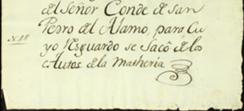 del Señor Conde de san
Pedro del Alamo, para Cu
yo Resguardo se Sacó de los
Autos de la Matheria